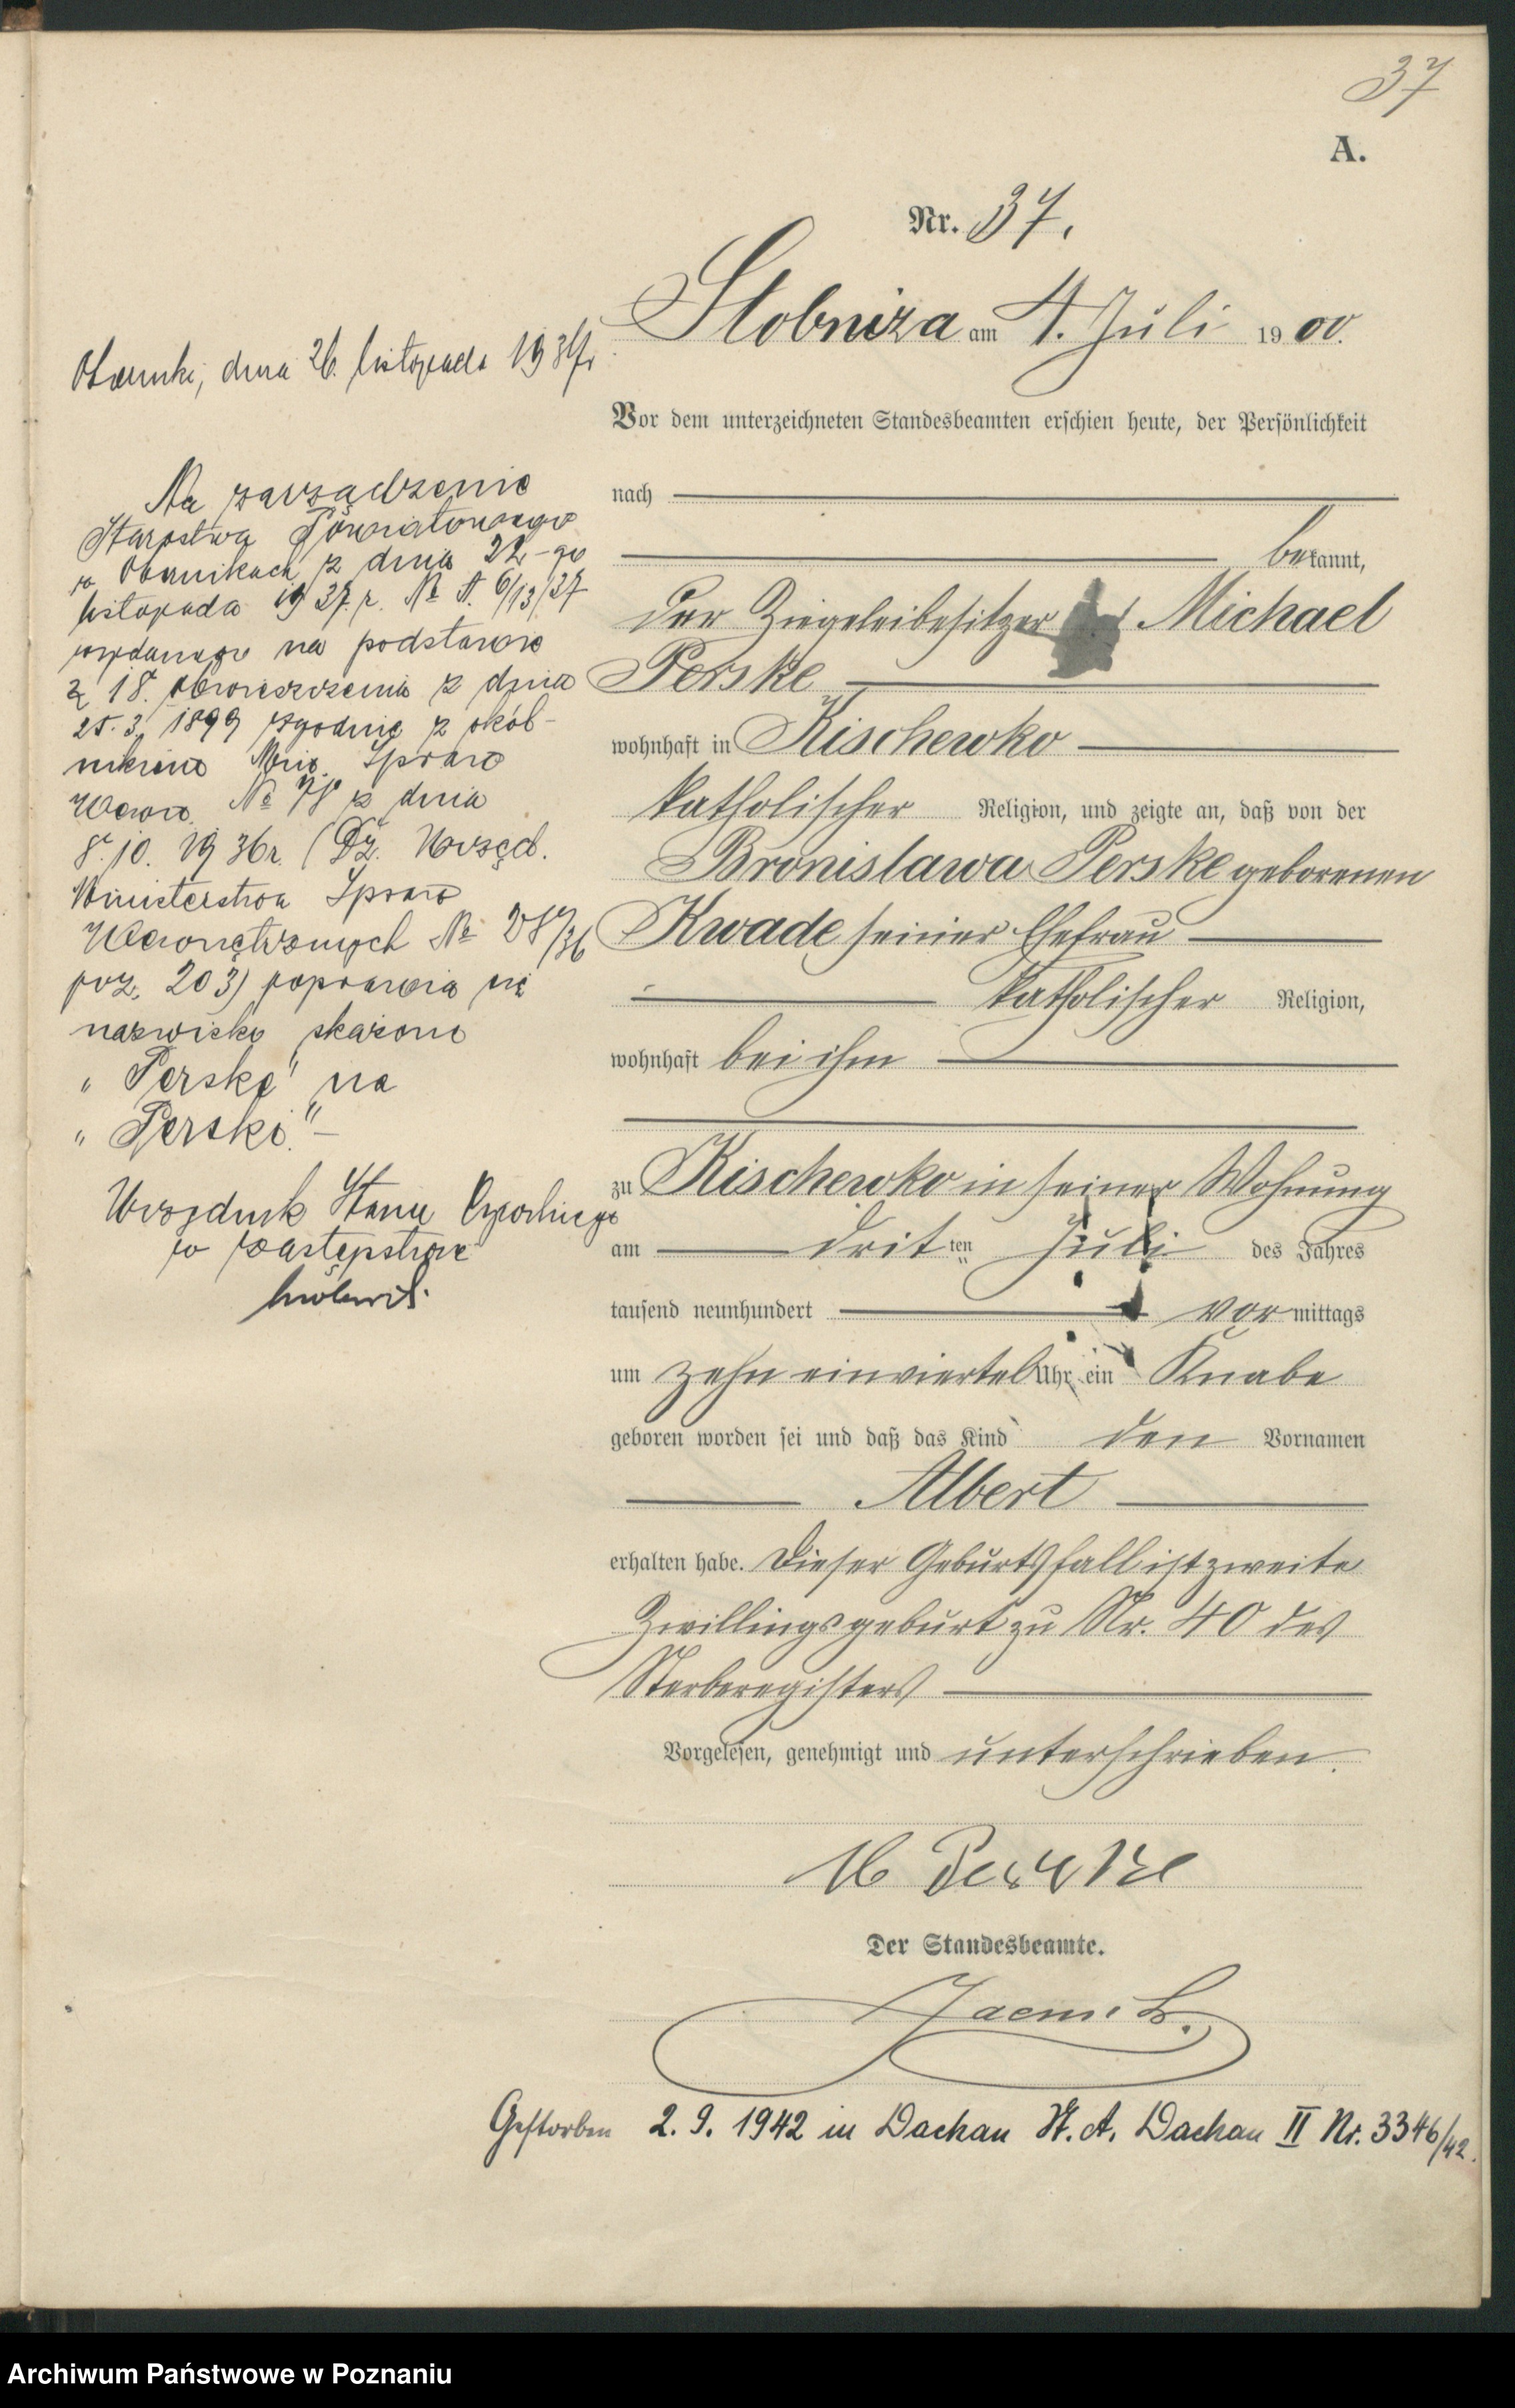 37
A.
Nr. 37.
Stobnica am 4. Juli 1900.
Vor dem unterzeichneten Standesbeamten erschien heute, der Persönlichkeit
nach
bekannt,
der Ziegeleibesitzer Michael
Perske
wohnhaft in Kischewko
katholischer Religion, und zeigte an, daß von der
Bronislawa Perske geborenen
Kwade seiner Ehefrau
katholischer Religion,
wohnhaft bei ihm
zu Kischewko in seiner Wohnung
am dritten Juli des Jahres
tausend neunhundert vormittags
um zehn einviertel Uhr ein Knabe
geboren worden sei und daß das Kind den Vornamen
Albert
erhalten habe. Dieser Geburtsfall ist zweite
Zwillingsgeburt zu Nr. 40 des
Sterberegisters
Vorgelesen, genehmigt und unterschrieben.
M Perske
Der Standesbeamte.
Gestorben 2. 9. 1942 in Dachau St. A. Dachau II Nr. 3346/42.
Oborniki, dnia 26. listopada 1937r.
Na zarządzenie
Starostwa Powiatowego
w Obornikach z dnia 22-go
listopada 1937. r. № A. 6/13/37
wydanego na podstawie
§ 18. obwieszczenia z dnia
25. 3. 1899 zgodnie z okól-
nikiem Min. Spraw
Wewn. № 78 z dnia
8. 10. 1936r. (Dz. Urzęd.
Ministerstwa Spraw
Wewnętrznych № 28/36
poz. 203) poprawia się
nazwisko skażone
„Perske" na
„Perski."-
Urzędnik Stanu Cywilnego
w zastępstwie
Archiwum Państwowe w Poznaniu